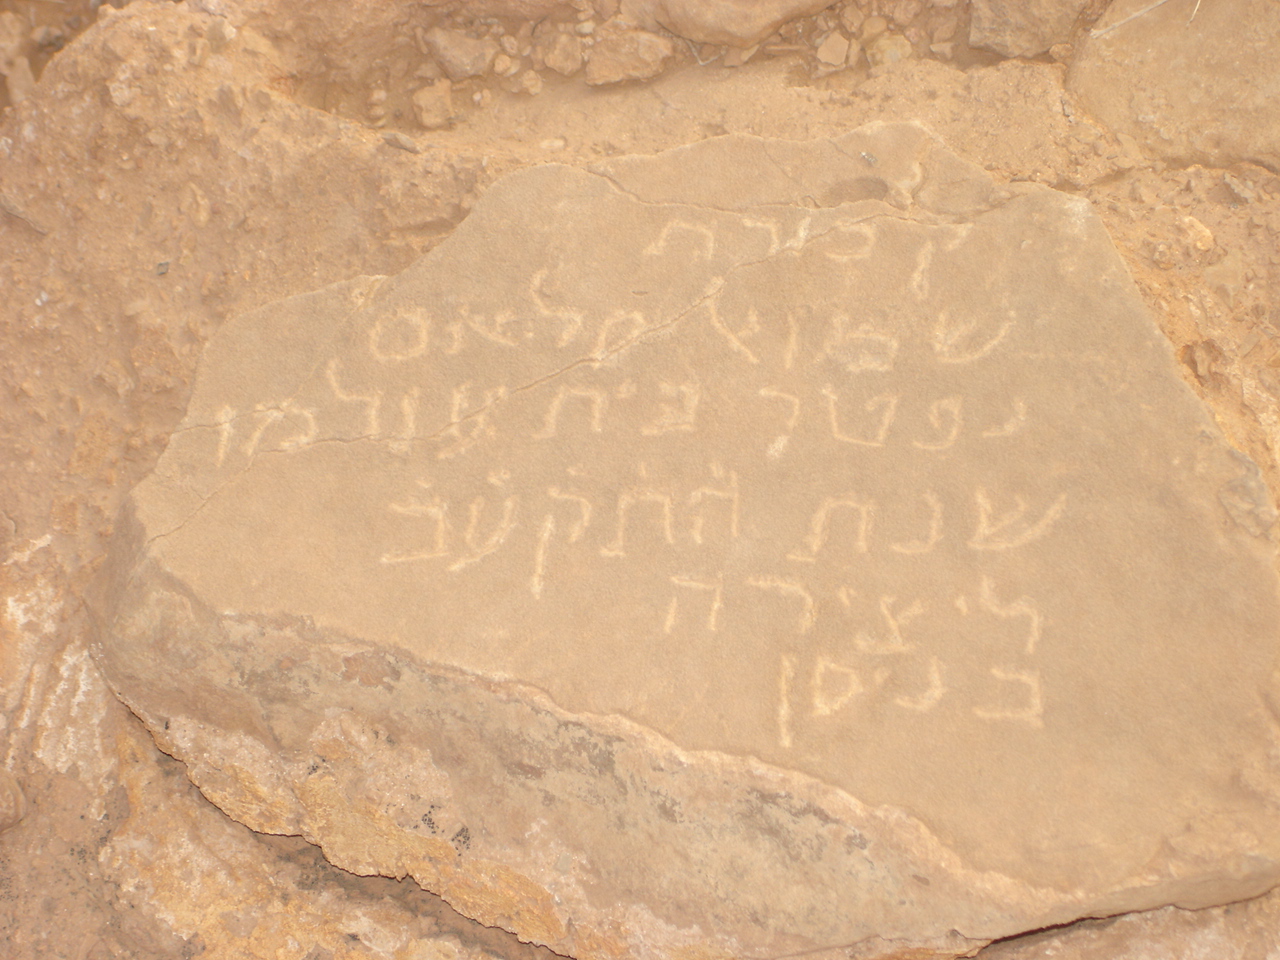 קבורת
שמוץ מלאס
נפטר בית עולמו
שנת התקעב
ליצירה
בניסן